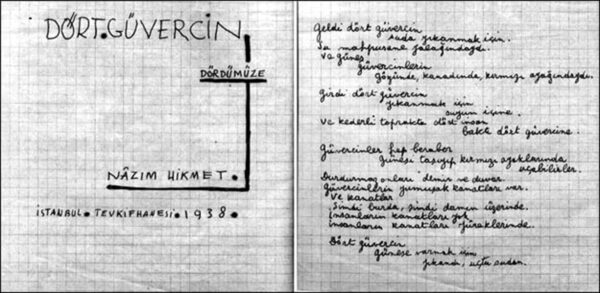 DÖRT.GÜVERCİN
DÖRDÜMÜZE
NÂZIM HİKMET.
İSTANBUL. TEVKİFHANESİ. 1938.
Geldi dört güvercin
suda yıkanmak için.
Su mahpusane yalağındaydı.
Ve güneş
güvercinlerin
gözünde, kanadında, kırmızı ayağındaydı.
Girdi dört güvercin
yıkanmak için
suyun içine.
Ve kederli toprakta dört insan
baktı dört güvercine.
Güvercinler hep beraber
güneşi taşıyıp kırmızı ayaklarında
uçabilirler.
Durdurmaz onları demir ve duvar.
Güvercinlerin yumuşak kanatları var.
Ve kanatlar
şimdi burda, şimdi damın üzerinde.
İnsanların kanatları yok
insanların kanatları yüreklerinde.
Dört güvercin
güneşe varmak için
yıkandı, uçtu sudan.